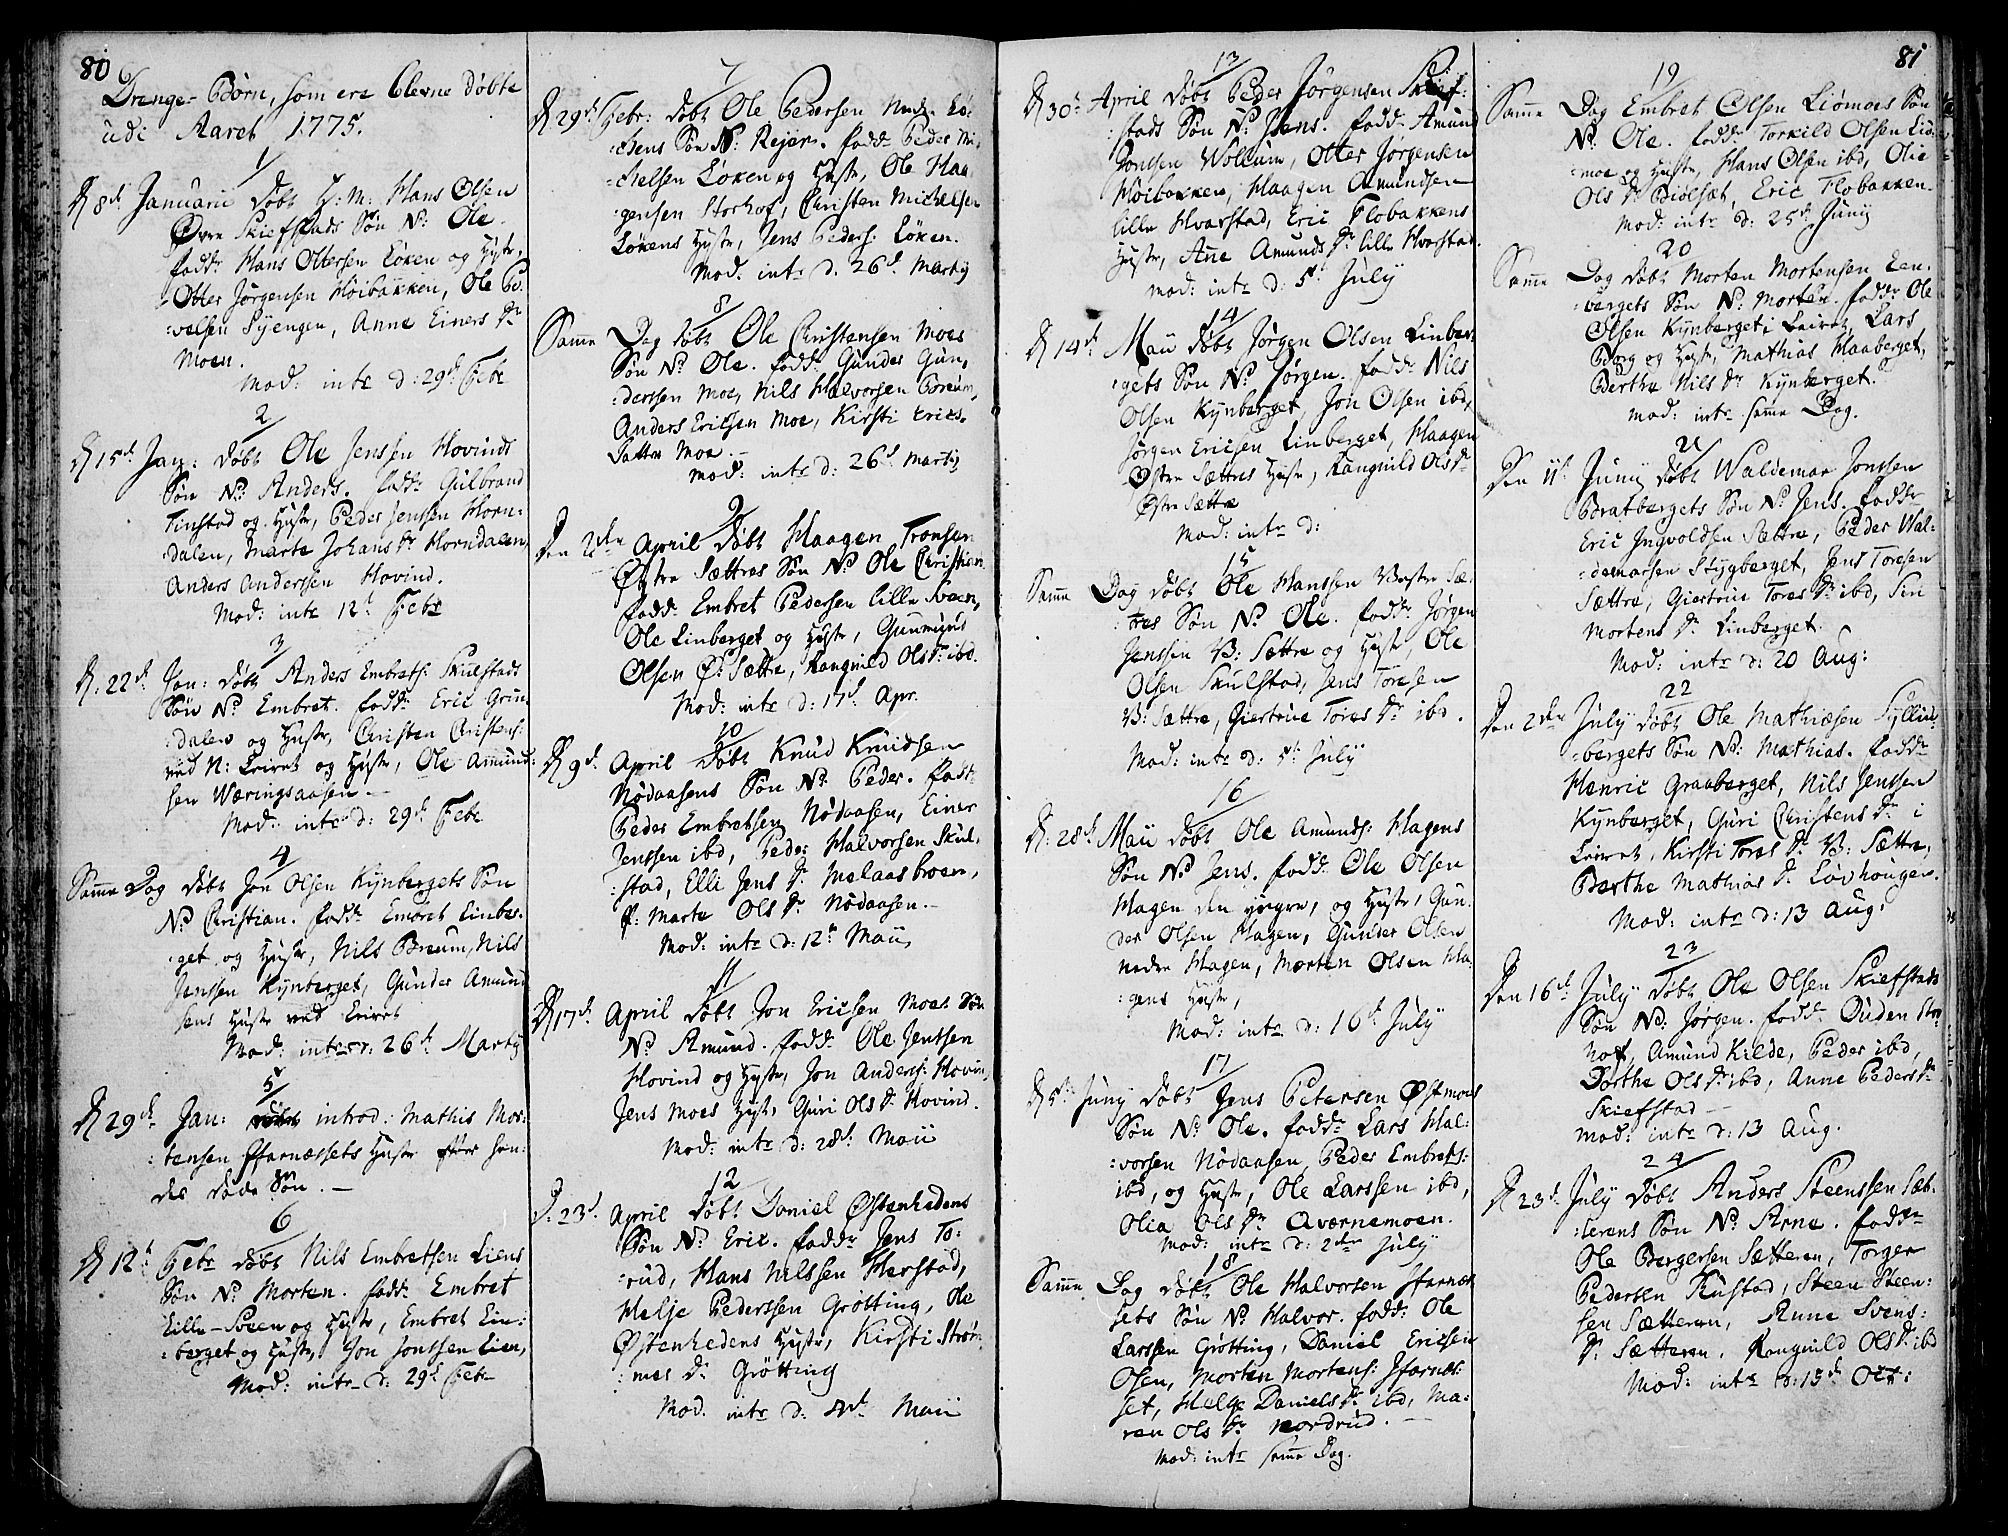 80
Drenge-Børn, som ere blevne døbte
udi Aaret 1775.
1
D. 8de Januarii døbt H: M: Hans Olsen
Øvre Skiefstads Søn N: Ole.
fadd: Hans Ottersen Løken og Hustr,
Otter Jørgensen Høibakken, Ole Po-
:velsen Syengen, Anne Einers Dr
Moen.
Mod: intr d: 29de Febr
2
D. 15de Jan: døbt Ole Jenssen Hovinds
Søn N: Anders. fadd: Gulbrand
Finstad og Hustr, Peder Jenssen Horn:
:dalen, Marte Johans Dr Horndalen,
Anders Anderssen Hovind.
Mod: intr 12te Febr
3
D. 22de Jan: døbt Anders Embrets: Skulstads
Søn N: Embret. fadd: Eric Grün:
:dalen og Hustr, Christen Christens:
ved N: Leiret og Hustr, Ole Amund:
sen Væringsaasen.
Mod: intr d: 29de Febr
4
Samme Dag døbt Jon Olsen Kynbergets Søn
N: Christian. fadd: Embret Linber-
:get og Hustr, Nils Breum, Nils
Jenssen Kynberget, Gunder Amund
sens Hustr ved Leiret
Mod: intror: 26de Martij
5
D. 29de Jan: introd: Mathis Mor:
:tensen Pfarnæssets Hustr efter hen:
des døde Søn.
6
D. 12te Febr døbt Nils Embretsen Liens
Søn N: Morten. fadd: Embret
Lille-Sveen og Hustr, Embret Lin:
:berget og Hustr, Jon Jonssen Lien,
Mod: intr d: 29de Febr
7
D. 29de Febr: døbt Ole Pedersen Nedr. Lø:
:kens Søn N: Rejer. fadd: Peder Mi:
:chelsen Løken og Hustr, Ole Haa
:gensen Storhof, Christen Michelsen
Løkens Hustr, Jens Peders: Løken.
Mod: intr d. 26de Martij
8
Samme Dag døbt Ole Christensen Moes
Søn N: Ole. fadd: Gunder Gun:
:derssen Moe, Nils Halvorsen Breum,
Anders Ericsen Moe, Kirsti Erics-
Datter Moe.
Mod: intr d: 26de Martij
9
Den 2den April døbt Haagen Tronsen
Østre Sættres Søn N: Ole Christian
fadd: Embret Pedersen lille Sveen,
Ole Linberget og Hustr, Gunmund
Olsen Ø: Sættre, Rangnild Ols Dr ibd.
Mod: intr d: 17de Apr.
10
D. 9de April døbt Knud Knudsen
Nodaasens Søn N: Peder. fadd:
Peder Embretsen Nodaasen, Einer
Jenssen ibd, Peder Halvorsen Skul:
:stad, Elli Jens Dr Melaasbroen,
P: Marte Ols Dr Nodaasen.
Mod: intr d: 12te Maii
11
D. 17de April døbt Jon Ericsen Moes Søn
N: Amund. fadd: Ole Jentsen
Hovind og Hustr, Jon Anders: Hovin,
Jens Moes Hust, Guri Ols Dr Hovind.
Mod: intr d: 28de Maii
12
D: 23de April døbt Daniel Østenhedens
Søn N: Eric. fadd: Jens To:
:rud, Hans Nilssen Herstad,
Helje Pederssen Grøtting, Ole
Østenhedens Hustr, Kirsti Strøm
:mes Dr Grøtting
Mod. intr d: Maii
13
D. 30te April døbt Peder Jørgensen Skief:
:stads Søn N: Jens. fadd: Amund
Jonssen Wollum, Otter Jørgensen
Høibakken, Haagen Amundsen
lille Hvarstad, Eric Flobakkens
Hustr, Ane Amunds Dr lille Hvarstad.
Mod: intr d: 5te July
14
D. 14de Maii døbt Jørgen Olsen Linber:
:gets Søn N: Jørgen. fadd: Nils
Olsen Kynberget, Jon Olsen ibd,
Jørgen Ericsen Linberget, Haagen
Østre Sættres Hustr, Rangnild Ols Dr
Østre Sættre
Mod: intr d:
15
Samme Dag døbt Ole Hanssen Vestre Sæ:
:tres Søn N: Ole. fadd: Jørgen
Jenssen V: Sættre og Hustr, Ole
Olsen Skulstad, Jens Toresen
V: Sættre, Giertrue Tores Dr ibd.
Mod: intr d: 5te July
16
D: 28de Maii døbt Ole Amunds: Hagens
Søn N: Jens. fadd: Ole Olsen
Hagen den yngre, og Hustr, Gun:
der Olsen Hagen, Gunder Olsen
nedre Hagen, Morten Olsen Ha:
:gens Hustr,
Mod: intr d: 16de July
17
D. 5te Juny døbt Jens Petersen Østmoes
Søn N: Ole. fadd: Lars Hal:
:vorsen Nodaasen, Peder Embrets:
ibd, og Hustr, Ole Larssen ibd,
Olia Ols Dr Qværnemoen.
Mod: intr d: 2den July
18
Samme Dag døbt Ole Halvorsen Pfarnæs
sets Søn N: Halvor. fadd: Ole
Larssen Grøtting, Daniel Ericsen
Olsen, Morten Mortens: Pfarnæs:
set, Helge Daniels Dr ibd, Ma:
ren Ols Dr Nordrud.
Mod: intr samme Dag.
81
19
Samme Dag Embret Olsen Liømoes Søn
N: Ole. fadd: Torkild Olsen Liø:
:moe og Hustr, Hans Olsen ibd, Olie
Ols Dr Biølsæt, Eric Flobakken.
Mod: intr d: 25de Junij
20
Samme Dag døbt Morten Mortensen Een:
:bergets Søn N: Morten. fadd: Ole
Olsen Kynberget i Leiret, Lars
Borg og Hustr, Mathias Haaberget,
Berthe Nils Dr Kynberget.
Mod: intr samme Dag.
21
Den 11te Junij døbt Waldemar Jonssen
Bratbergets Søn N: Jens. fadd:
Eric Ingvoldsen Sættre, Peder Wal:
:demarsen Stygberget, Jens Toresen
Sættre, Giertrue Tores Dr ibd, Siri
Mortens Dr Linberget.
Mod: intr d: 20 Aug:
22
Den 2den July døbt Ole Mathiæsen Syllin:
:bergets Søn N: Mathias. fadd:
Henric Graaberget, Nils Jenssen
Kynberget, Guri Christens Dr i
Leiret, Kirsti Tores Dr V: Sættre,
Berthe Mathias Dr Løvhougen.
Mod: intr d: 13 Aug:
23
Den 16de July døbt Ole Olsen Skiefstads
Søn N: Jørgen. fadd: Ouden Stor
hof, Amund Kilde, Peder ibd,
Dorthe Ols Dr ibd, Anne Peders Dr
Skiefstad
Mod: intr d: 13 Aug.
24
D. 23de July døbt Anders Steenssen Sæt:
:terens Søn N: Arne. fadd:
Ole Bergersen Sætteren, Torger
Pedersen Rustad, Steen Steen:
sen Sætteren, Anne Svens:
Dr Sætteren, Rangnild Ols Dr ibd
Mod: intr d: 15de Oct: